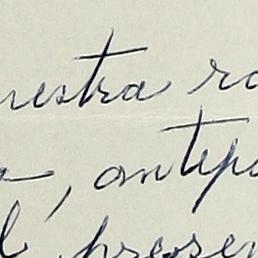 uestra ra
, antepa
l presen